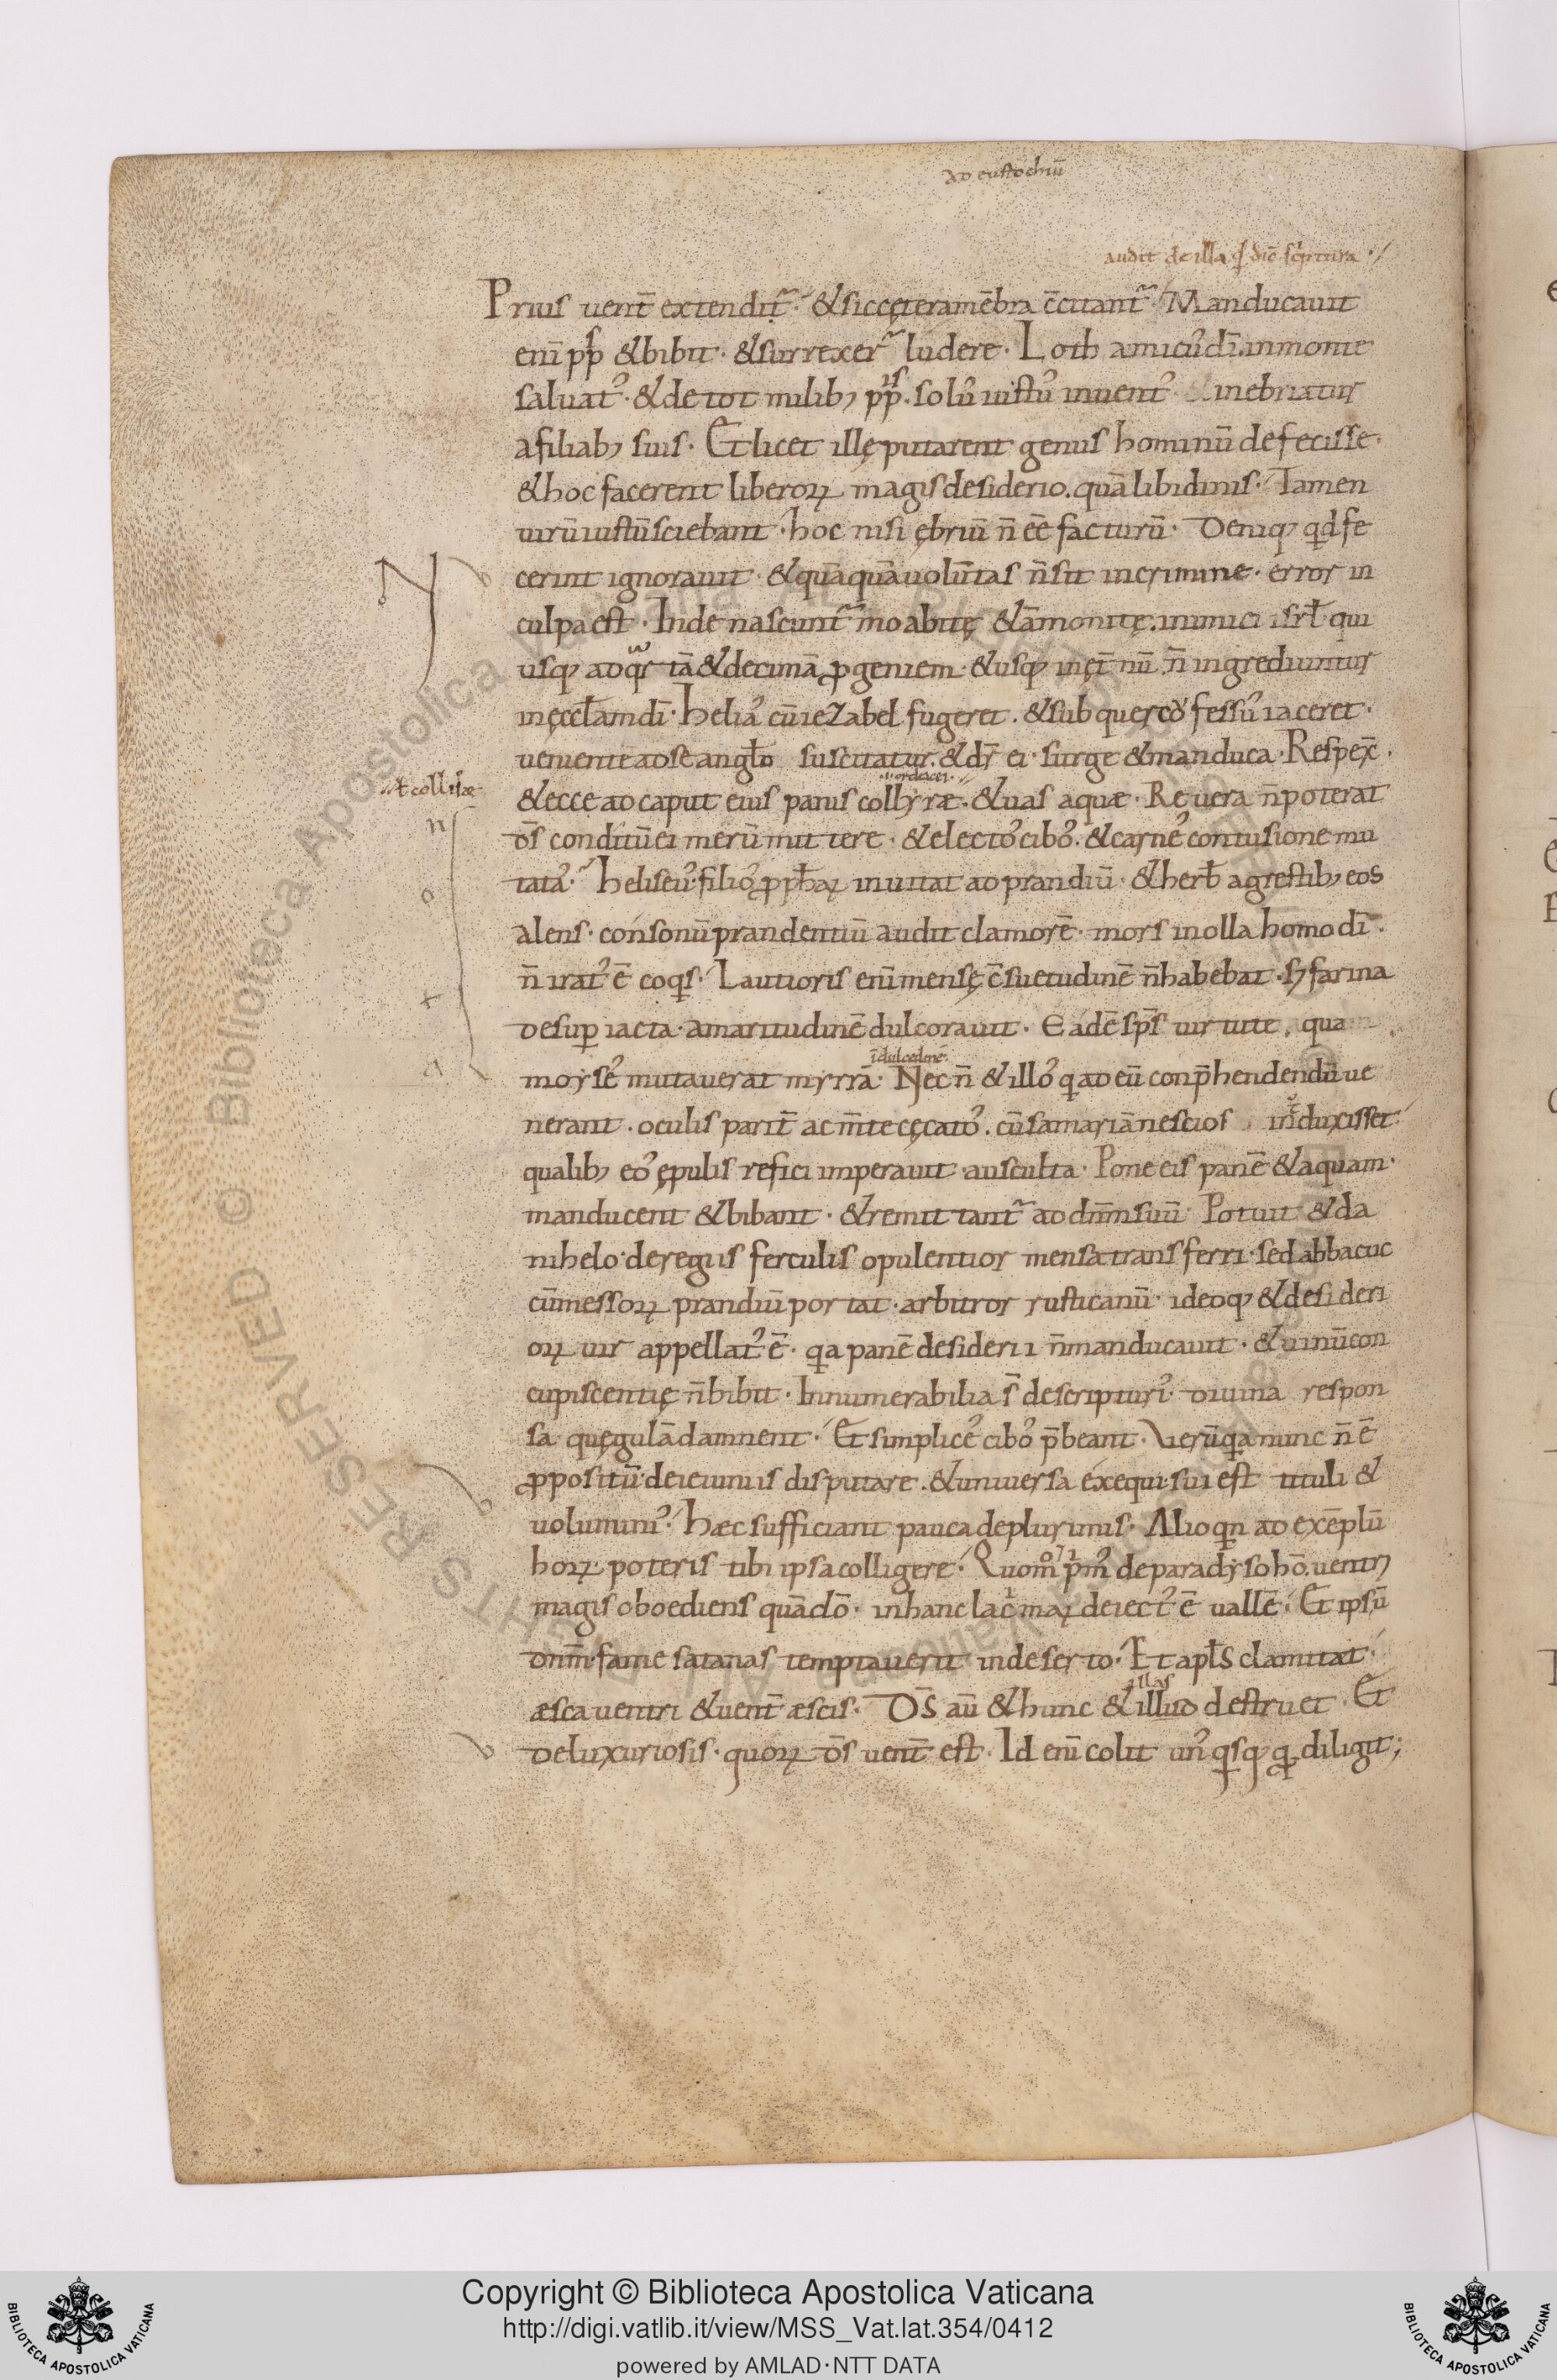 ad eustochiū
audit de illa q̄ dic̄ scriptura ·/
Prius uent̄ extendit̃· & sic cętera mēbra c̄citant̃· Manducauit
enī pp̄ls & bibit· & surrexer̃ ludere· Loth amicus dī. in monte
saluat᾿· & de tot milib; pp̄lis. solū iustū inuent᾿· & inebriatur
a filiab; suis· Et licet illę putarent genus hominū defecisse·
& hoc facerent liberoꝝ magis desiderio. quā libidinis· Tamen
uirū iustū sciebant· hoc nisi ębriū n̄ eē facturū· Deniq; qd fe
cerint ignorauit· & quāquā uolūtas n̄ sit in crimine· error in
culpa est· Inde nascunt̃ moabitę & āmonitę. inimici isrł· qui
usq; ad qrtā & decimā ꝓgeniem· & usq; in ęt̄nū n̄ ingrediuntur
in ęccłam dī· Helias᾿ cū iezabel fugeret. & sub quercu fessus᾿ iaceret·
ueniente ad se angło suscitatur. & dr̄ ei· surge & manduca· Respex̄·
·i· ordeacei·
ł collisæ
& ecce ad caput eius panis collyræ· & uas aquæ· Re uera n̄ poterat
ds̄ conditū ei merū mittere· & electos᾿ cibos᾿. & carnes᾿ contusione mu
tatas᾿· Heliseus᾿ filios᾿ ꝓphaꝝ inuitat ad prandiū· & herb̄ agrestib; eos
alens· consonū prandentiū audit clamorē· mors in olla homo dī·
n̄ irat᾿ ē coqs· Lautioris enī mensę c̄suetudinē n̄ habebat· s; farina
desuꝑ iacta· amaritudinē dulcorauit· Eadē sps̄ uirtute, qua
ī dulcedinē·
moyses᾿ mutauerat myrrā· Nec n̄ & illos᾿ q ad eū conp̄hendendū ue
nerant· oculis parit̄ ac m̄te cęcatos᾿. cū samariā nescios induxisset·
qualib; eos᾿ ępulis refici imperauit ausculta· Pone eis panē & aquam·
manducent & bibant· & remittant̃ ad dn̄m suū· Potuit & da
nihelo· de regiis ferculis opulentior mensa transferri· sed abbacuc
cū messoꝝ prandiū portat· arbitror rusticanū· ideoq; & desideri
oꝝ uir appellat᾿ ē· qa panē desiderii n̄ manducauit· & uinū con
cupiscentię n̄ bibit· Innumerabilia s̄t de scripturis᾿· diuina respon
sa· quę gulā damnent· Et simplices᾿ cibos᾿ p̄beant· Verū qa nunc n̄ ē
ꝓpositū· de ieiuniis disputare. & uniuersa exequi· sui est tituli &
uoluminis᾿· Hæc sufficiant pauca de plurimis· Alioqn ad exēplū
hoꝝ· poteris tibi ipsa colligere· Quom̊ & prim᾿ de paradyso hō. uentri
magis oboediens quā dō· in hanc lacrimaꝝ deiect᾿ ē uallē· Et ipsū
dn̄m· fame satanas temptauerit in deserto· Et apłs clamitat·
illas
æsca uentri & uent̄ æscis· Ds̄ aū & hunc & illud destruet· Et
de luxuriosis· quoꝝ ds̄ uent̄ est· Id enī colit un᾿qsq; qd diligit;
n
o
t
a